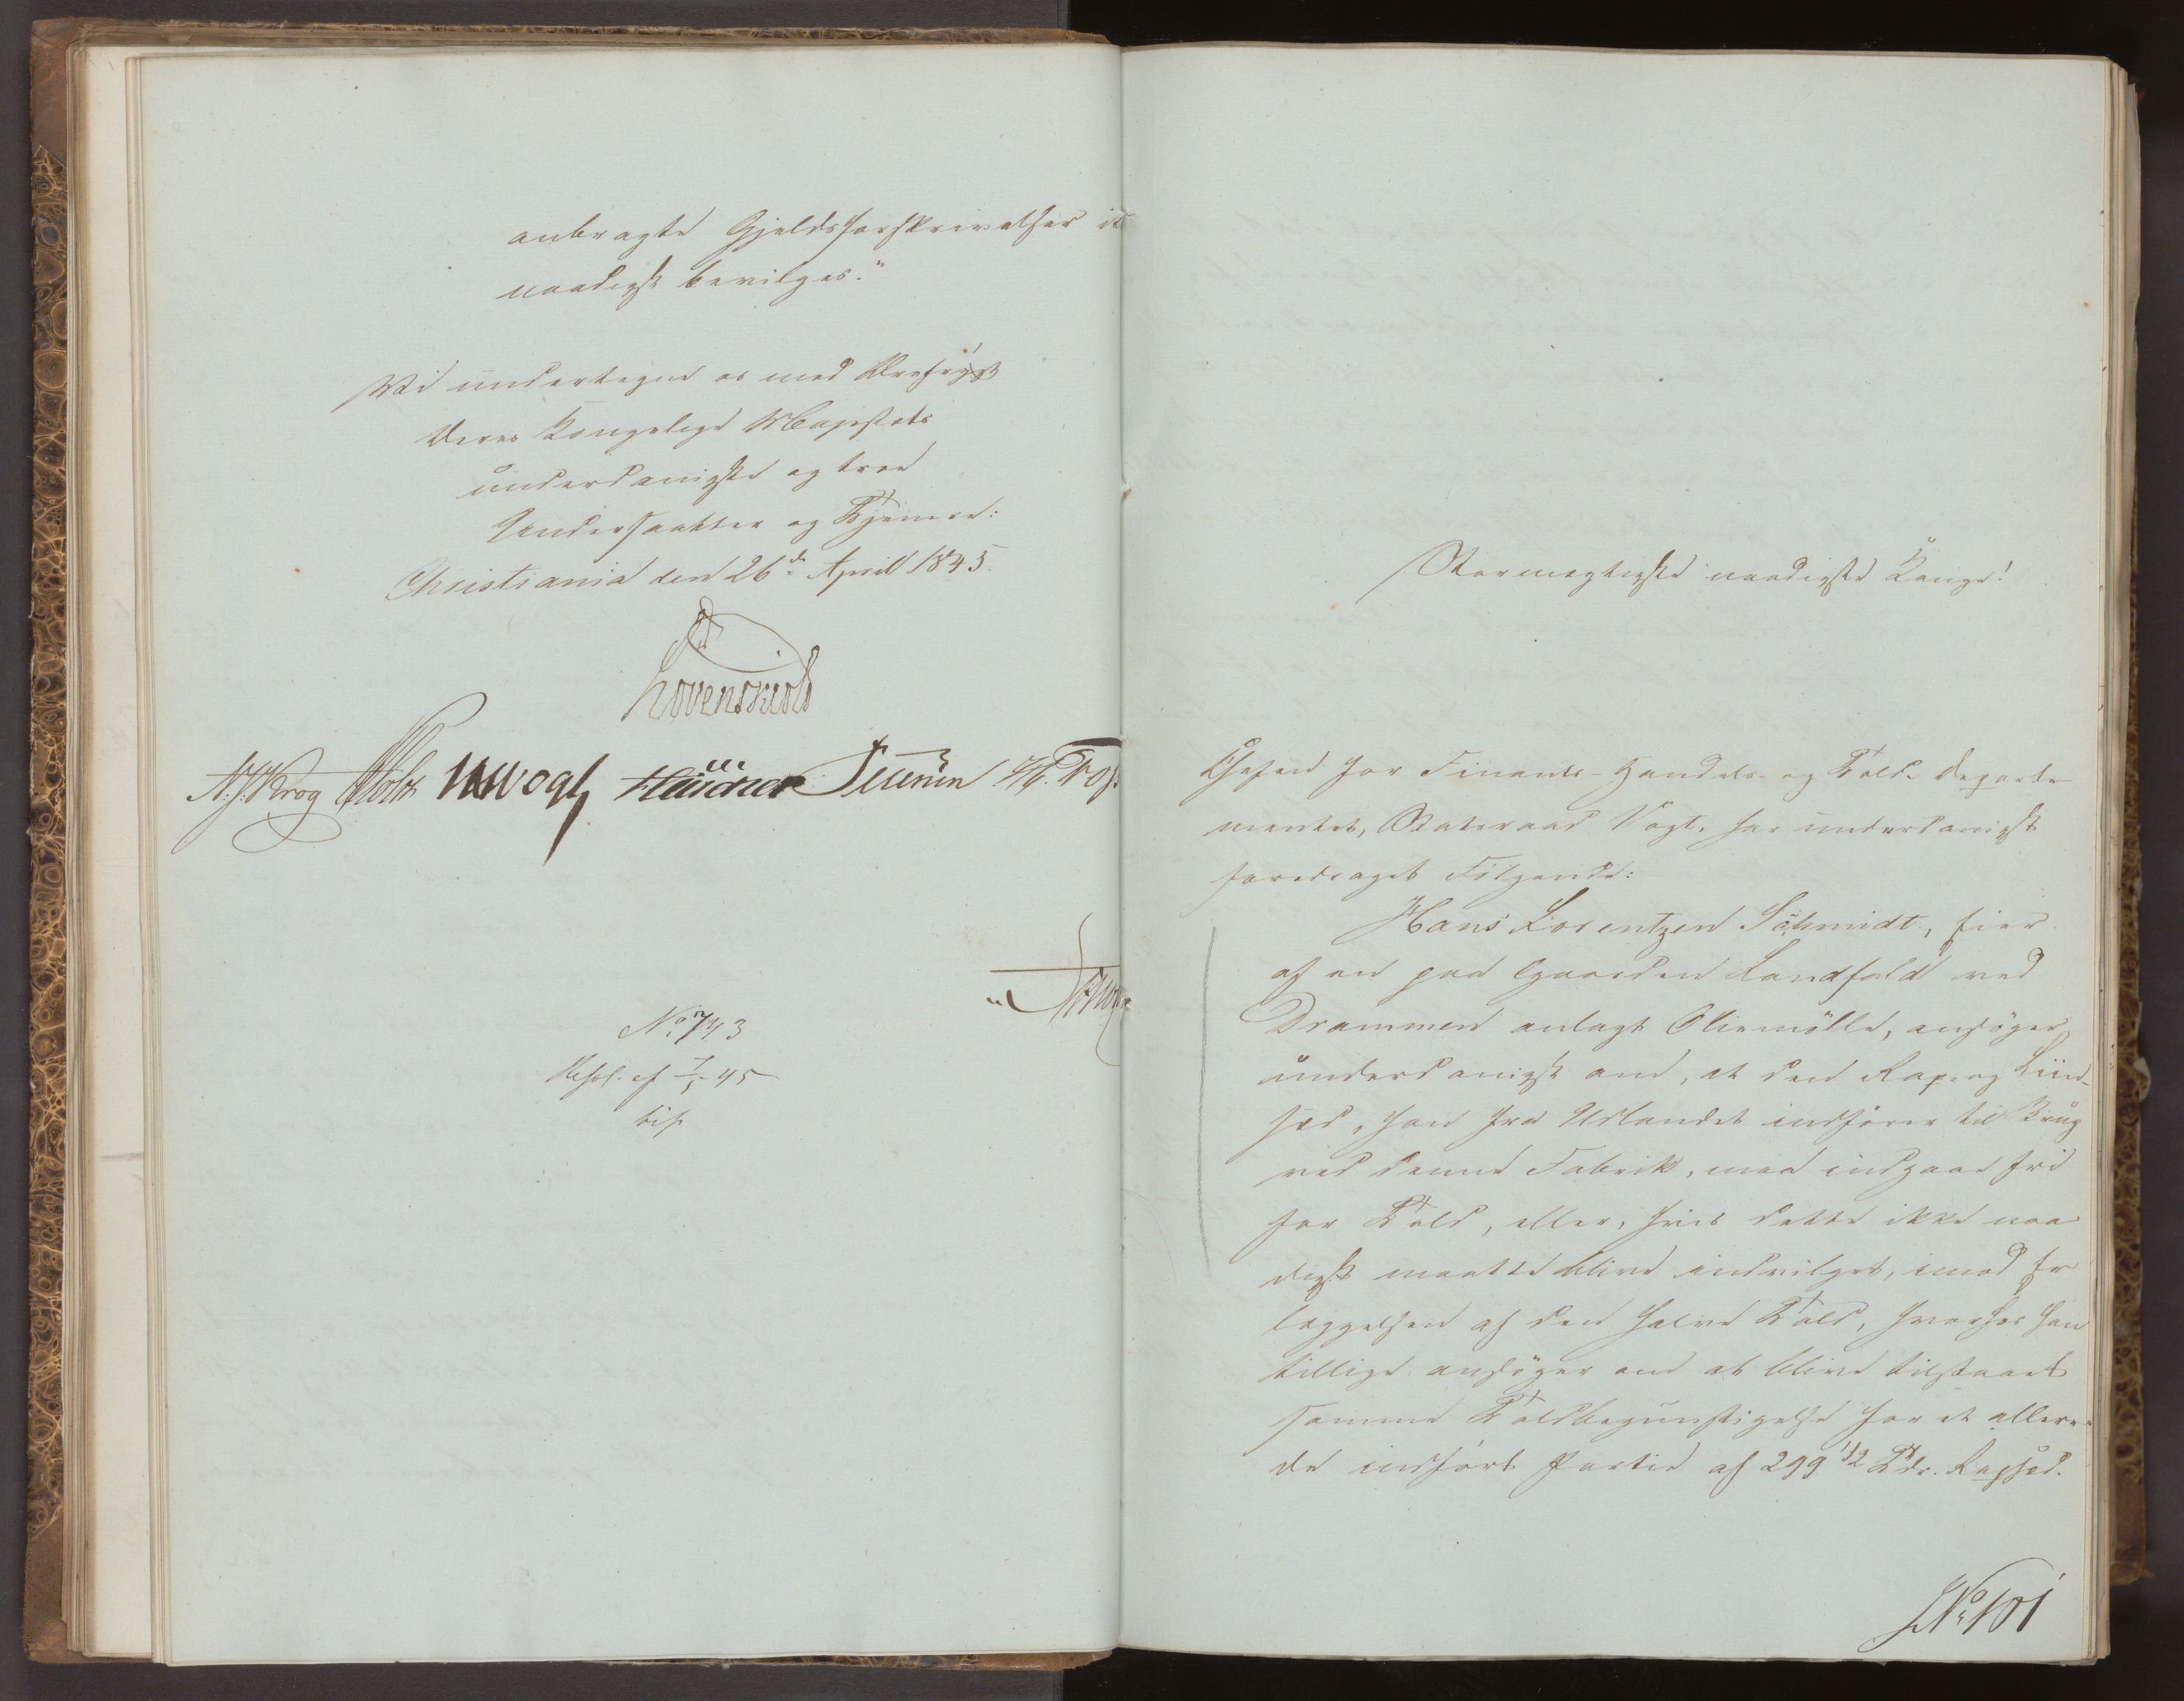 anbragte Gjeldsforskrivelser
naadigst bevilges."
Vi undertegne os med Ærefrygt
Deres Kongelige Majestæts
underdanigste og troe
Undersaatter og Tjenere:
Christiania den 26de April 1845.
Løvenskiold
N. J. Krog Holst Vogt
No 743
Resol. af 7/5 45
Stormægtigste naadigste Konge!
Chefen for Finants- Handels- og Told-Departe
mentet, Statsraad Vogt, har underdanigst
foredraget Følgende:
Hans Lorentzen Schmidt, Eier
af en paa Gaarden Landfald ved
Drammen anlagt Oliemölle, ansöger
underdanigst om, at den Rap- og Liin-
sæd, han fra Udlandet indfører til Brug
ved denne Fabrik, maa indgaae fri
for Told, eller, hvis dette ikke naa
digst maatte blive indvilget, imod Er
læggelsen af den halve Told, hvorhos han
tillige ansöger om at blive tilstaaet
samme Toldbegunstigelse for et allere-
de indført Partie af 299 1/2 Tdr. Rapsæd.
No 101